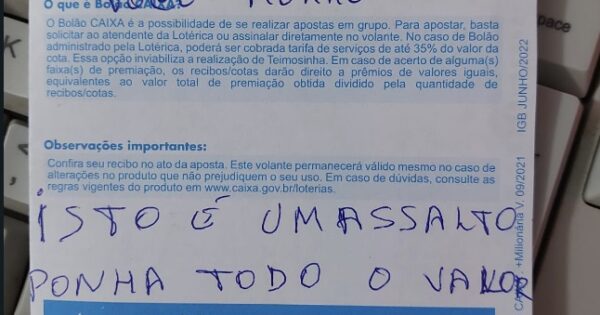 O que é Bolão CAIXA?
O Bolão CAIXA é a possibilidade de se realizar apostas em grupo. Para apostar, basta
solicitar ao atendente da Lotérica ou assinalar diretamente no volante. No caso de Bolão
administrado pela Lotérica, poderá ser cobrada tarifa de serviços de até 35% do valor da
cota. Essa opção inviabiliza a realização de Teimosinha. Em caso de acerto de alguma(s)
faixa(s) de premiação, os recibos/cotas darão direito a prêmios de valores iguais,
equivalentes ao valor total de premiação obtida dividido pela quantidade de
recibos/cotas.
Observações importantes:
Confira seu recibo no ato da aposta. Este volante permanecerá válido mesmo no caso de
alterações no produto que não prejudiquem o seu uso. Em caso de dúvidas, consulte as
regras vigentes do produto em www.caixa.gov.br/loterias.
ISTO É UM ASSALTO
PONHA TODO O VALOR
+Milionária V. 09/2021 IGB JUNHO/2022
pace